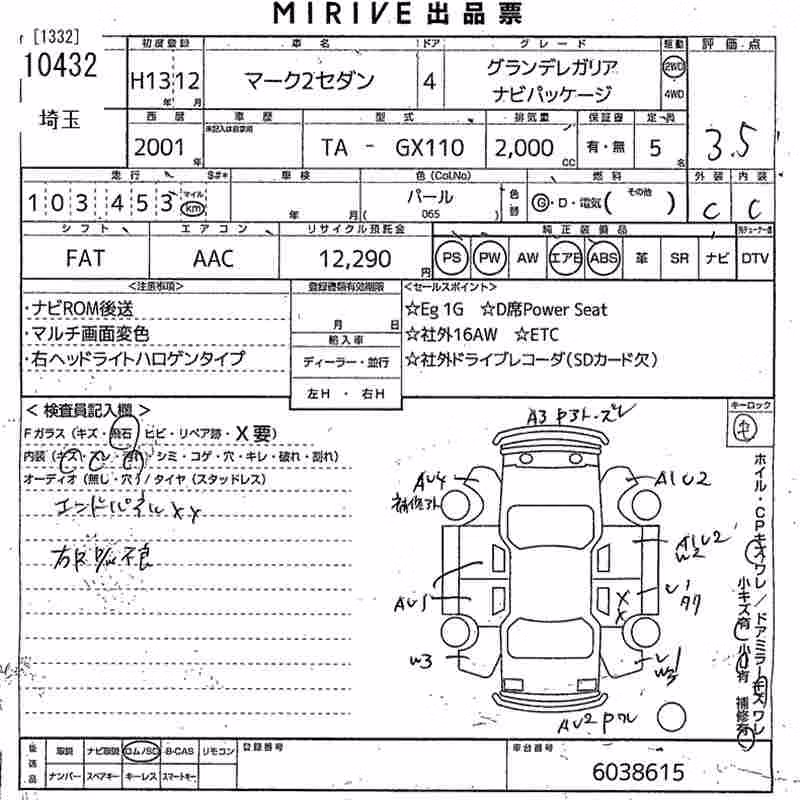 MIRIVE 出品票
[1332]
10432
埼玉
初度登録 車名 ドア グレード 駆動 評価点
H13 12 マーク2セダン 4 グランデレガリア ナビパッケージ 2WD 4WD
年 月
西暦 車歴 型式 排気量 保証書 定員
未記入は自家用
2001年 TA - GX110 2,000cc 有・無 5名
3.5
走行 S#* 車検 色(Col.No) 燃料 外装 内装
103,453 マイル km 年 月 パール 065 色替 G・D・電気( その他 ) C C
シフト エアコン リサイクル預託金 純正装備品
FAT AAC 12,290円 PS PW AW エアB ABS 革 SR ナビ DTV
<注意事項> 登録書類有効期限 <セールスポイント>
・ナビROM後送
・マルチ画面変色
・右ヘッドライトハロゲンタイプ
月 日
輸入車
ディーラー・並行
左H ・ 右H
☆Eg 1G ☆D席Power Seat
☆社外16AW ☆ETC
☆社外ドライブレコーダ(SDカード欠)
<検査員記入欄>
Fガラス(キズ・飛石 ヒビ・リペア跡・X要)
内装(キズ・スレ・汚れ・シミ・コゲ・穴・キレ・破れ・割れ)
オーディオ(無し・穴)/タイヤ(スタッドレス)
キーロック
A1U2
AU4
AU1
W3
W2
AU2
ホイル・CPキズワレ/ドアミラーキズワレ
小キズ有 小凹有 補修有
後送品 取説 ナビ取説 ロム/SD B-CAS リモコン
ナンバー スペアキー キーレス スマートキー
登録番号
車台番号
6038615